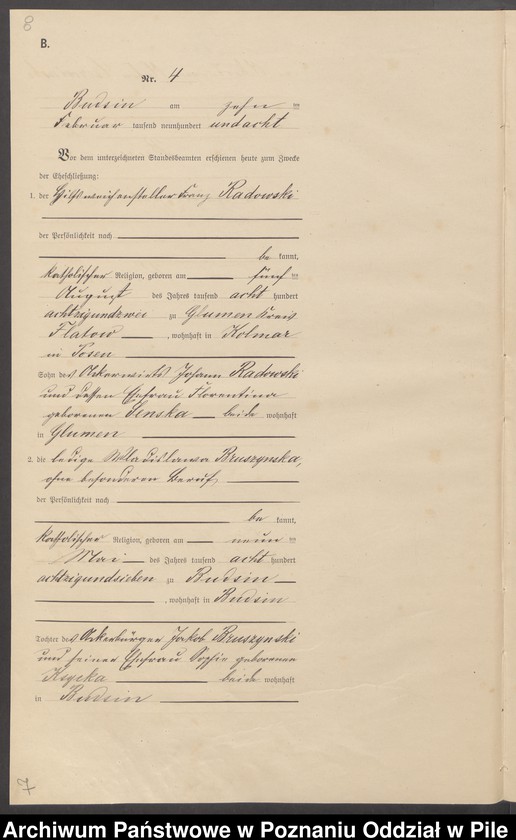 8
B.
Nr. 4
Budsin am zehn ten
Februar tausend neunhundert undacht
Vor dem unterzeichneten Standesbeamten erschienen heute zum Zwecke
der Eheschließung:
1. der Hilfsweichensteller Franz Radowski
der Persönlichkeit nach
be kannt,
katholischer Religion, geboren am fünf ten
August des Jahres tausend acht hundert
achtzigundzwei zu Glumen Kreis
Flatow , wohnhaft in Kolmar
in Posen
Sohn des Ackerwirts Johann Radowski
und dessen Ehefrau Florentina
geborenen Senska beide wohnhaft
in Glumen
2. die ledige Wladislawa Bruszynska,
ohne besonderen Beruf,
der Persönlichkeit nach
be kannt,
katholischer Religion, geboren am neun ten
Mai des Jahres tausend acht hundert
achtzigundsieben zu Budsin
, wohnhaft in Budsin
Tochter des Ackerbürger Jakob Bruszynski
und seiner Ehefrau Sophie geborenen
beide wohnhaft
in Budsin
7
Archiwum Państwowe w Poznaniu Oddział w Pile